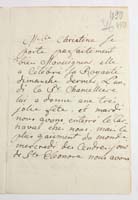 Melle Christine se
porte parfaitement
bien Monseigneur elle
a célébré la Royauté
dimanche dernier. L'un
di la Cte Chancelliere
lui a donné une très
jolie fête et mardi
nous avons enterré le Car
naval chez nous, mais le
plus gaiement du monde
mercredi des Cendres, jour
de Ste Eleonore nous avons